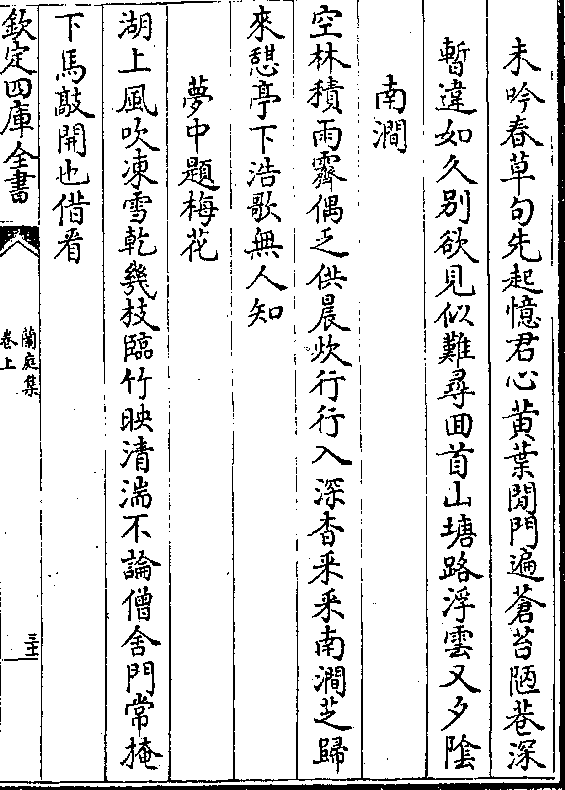 未吟春草句先起憶君心黄葉閒門遍蒼苔陋巷深
暫違如久别欲見似難尋回首山塘路浮雲又夕陰
南澗
空林積雨霽偶乏供晨炊行行入深杳采采南澗芝歸
來憇亭下浩歌無人知
夢中題梅花
湖上風吹凍雪乾幾枝臨竹映清湍不論僧舍門常掩
下馬敲開也借看
欽定四庫全書
蘭庭集
卷上